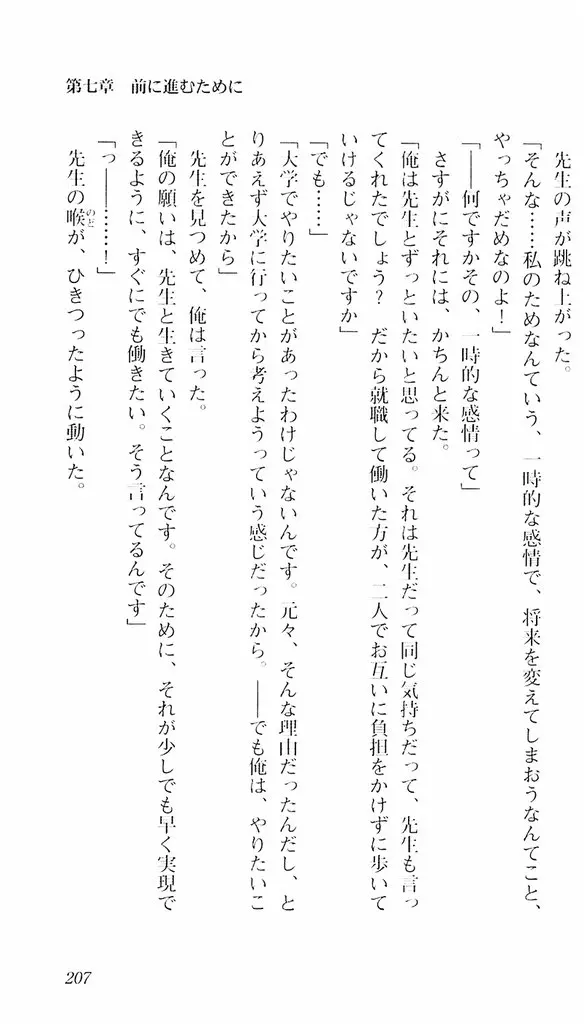 第七章　前に進むために
　先生の声が跳ね上がった。
「そんな……私のためなんていう、一時的な感情で、将来を変えてしまおうなんてこと、
やっちゃだめなのよ！」
「――何ですかその、一時的な感情って」
　さすがにそれには、かちんと来た。
「俺は先生とずっといたいと思ってる。それは先生だって同じ気持ちだって、先生も言っ
てくれたでしょう？　だから就職して働いた方が、二人でお互いに負担をかけずに歩いて
いけるじゃないですか」
「でも……」
「大学でやりたいことがあったわけじゃないんです。元々、そんな理由だったんだし、と
りあえず大学に行ってから考えようっていう感じだったから。――でも俺は、やりたいこ
とができたから」
　先生を見つめて、俺は言った。
「俺の願いは、先生と生きていくことなんです。そのために、それが少しでも早く実現で
きるように、すぐにでも働きたい。そう言ってるんです」
「っ――……！」
　先生の喉のどが、ひきつったように動いた。
207